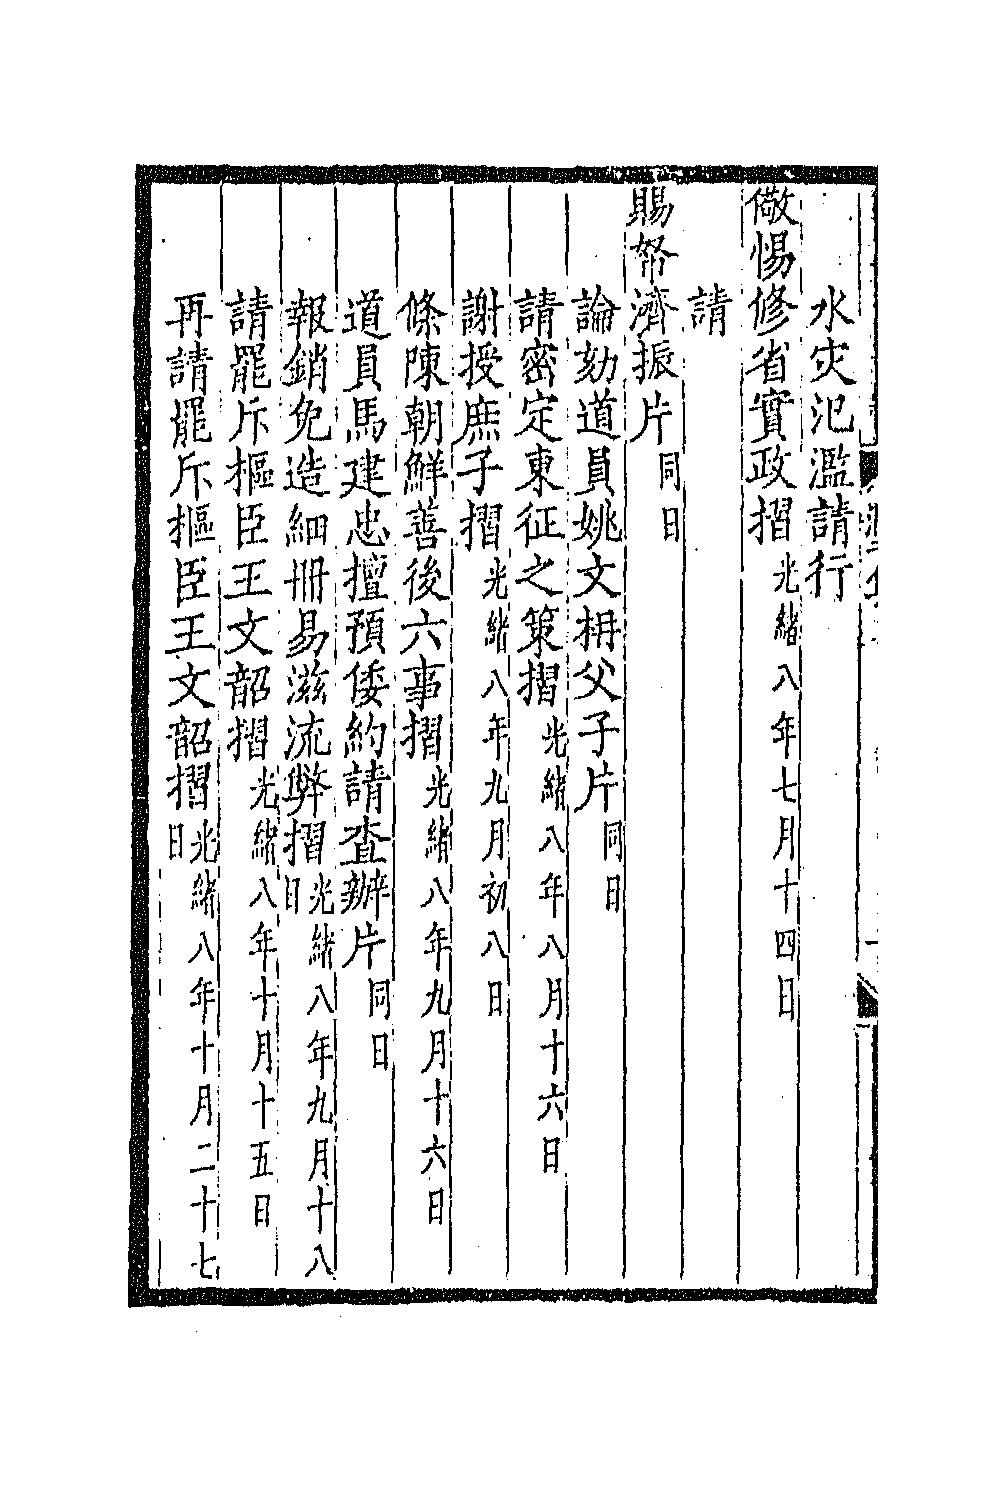 水灾氾濫請行
儆惕修省實政摺光緒八年七月十四日
請
賜帑濟振片同日
論劾道員姚文枏父子片同日
請密定東征之策摺光緒八年八月十六日
謝授庶子摺光緒八年九月初八日
條陳朝鮮善後六事摺光緒八年九月十六日
道員馬建忠擅預倭約請查辦片同日
報銷免造細冊易滋流弊摺光緒八年九月十八日
請罷斥樞臣王文韶摺光緒八年十月十五日
再請罷斥樞臣王文韶摺光緒八年十月二十七日